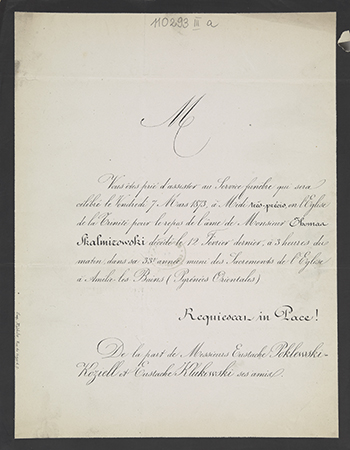 110293 III a
M
Vous êtes prié d'assister au Service funèbre qui sera
célébré le Vendredi 7 Mars 1873, à Midi très-précis, en l'Eglise
de la Trinité pour le repos de l'âme de Monsieur Thomas
Skalmirowski décédé le 12 Février dernier, à 3 heures du
matin, dans sa 33e année, muni des Sacrements de l'Eglise
à Amélie les Bains (Pyrénées Orientales)
Requiescat in Pace!
De la part de Messieurs Eustache Poklewski-
Koziell et Eustache Klukowski ses amis.